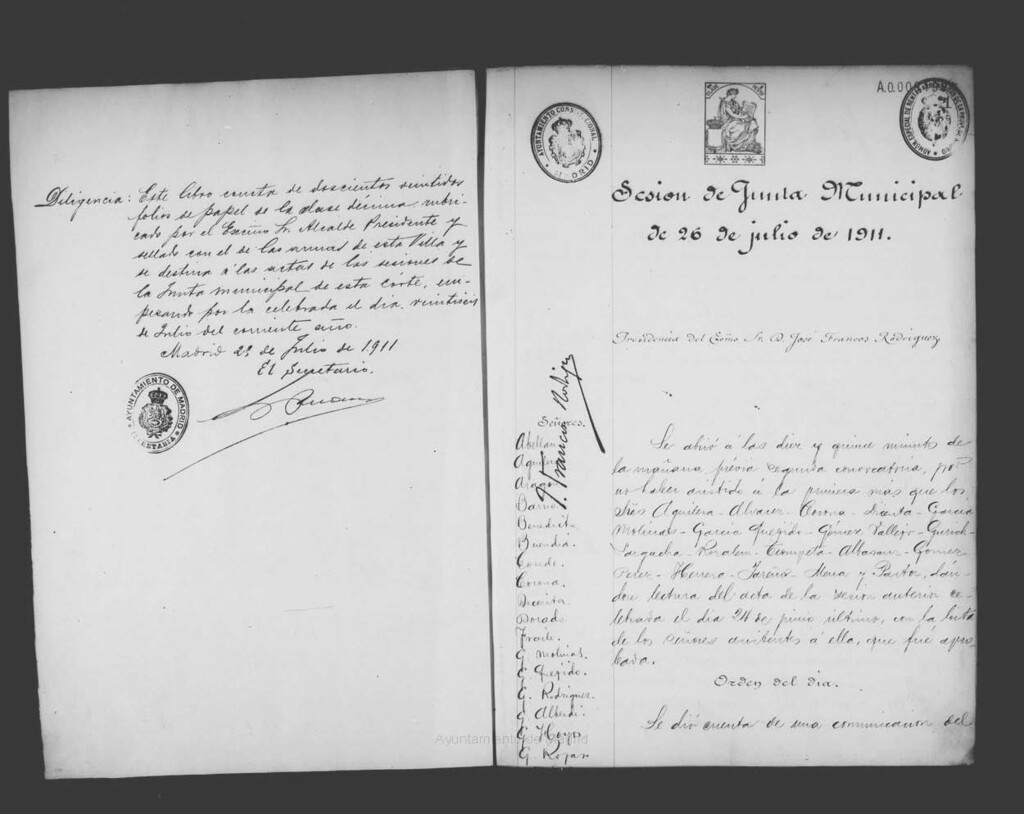 Diligencia: Este libro consta de doscientos veintidos
folios de papel de la clase décima, rubri-
cado por el Excmo Sr. Alcalde Presidente y
sellado con el de las armas de esta Villa y
se destina á las actas de las sesiones de
la Junta municipal de esta Corte, em-
pezando por la celebrada el dia veintiseis
de Julio del corriente año.
Madrid 25 de Julio de 1911
El Secretario.
AYUNTAMIENTO DE MADRID
SECRETARIA
AYUNTAMIENTO CONSTITUCIONAL
MADRID
A.0.000
Sesion de Junta Municipal
de 26 de julio de 1911.
Presidencia del Excmo Sr. D. José Francos Rodriguez
J. Francos Rodriguez
Señores.
Abellan
Aguilera
Aragon
Barrio
Benedicto
Buendia.
Conde.
Corona.
Dicenta.
Dorado
Fraile.
G. Molinas.
G. Quejido.
G. Rodriguez.
G. Alberdi.
G. Hoyo
G. Rojas
Se abrió á las diez y quince minutos de
la mañana, prévia segunda convocatoria, por
no haber asistido á la primera más que los
Sres Aguilera - Alvarez - Corona - Dicenta - Garcia
Molinas - Garcia Quejido - Gómez Vallejo - Gurich
Largacha - Rosalem - Trompeta - Altasanz - Gomez
Perez - Herrero - Jareño - Mena y Pastor, dán-
dose lectura del acta de la sesion anterior ce-
lebrada el dia 24 de junio último, con la lista
de los señores asistentes á ella, que fué apro-
bada.
Orden del dia.
Se dió cuenta de una comunicacion del
Ayuntamiento de Madrid